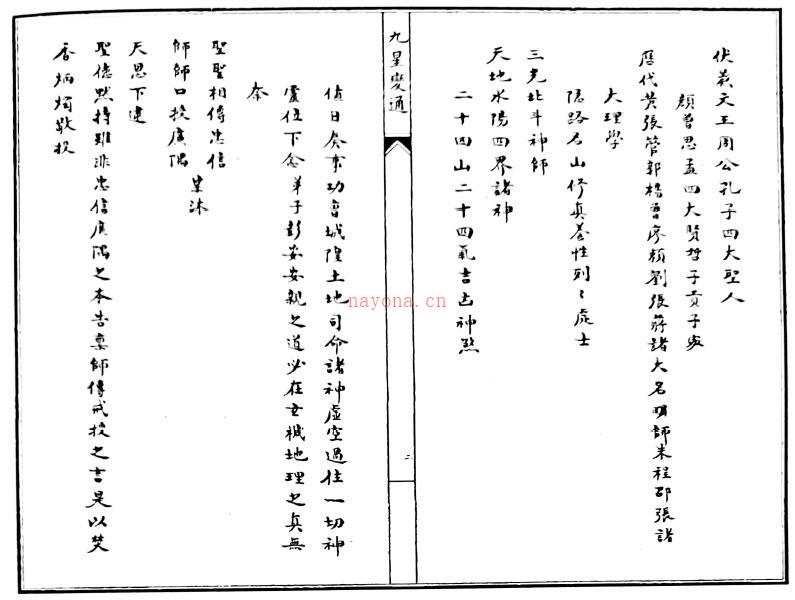 伏羲文王周公孔子四大聖人
顏曾思孟四大賢哲子貢子夏
歷代黃張管郭楊曾廖賴劉張蔣諸大名明師朱程邵張諸
大理學
隱路名山修真養性列〻處士
三光北斗神師
天地水陽四界諸神
二十四山二十四氣吉凶神煞
九星變通
二
值日奏事功曹城隍土地司命諸神虛空過往一切神
靈位下念弟子彭安安親之道必在玄機地理之真無
奈
聖聖相傳忠信
師師口授廉隅
業沐
天恩下逮
聖德默持雖非忠信廉隅之本告稟師傳戒授之言是以焚
香炳燭敬投
nayona.cn